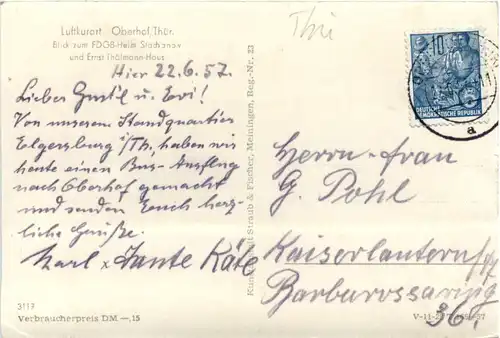 Luftkurort Oberhof/Thür.
Blick zum FDGB-Heim Stachanov
und Ernst-Thälmann-Haus
Hier 22.6.57.
Lieber Gust'l u. Evi!
Von unserem Standquartier
Elgersburg i/Th. haben wir
heute einen Bus-Ausflug
nach Oberhof gemacht
und senden Euch herz-
liche Grüße.
Karl x Tante Käte
3113
Verbraucherpreis DM -,15
Straub & Fischer, Meiningen, Reg.-Nr. 23
Thü
DEUTSCHE
DEMOKRATISCHE REPUBLIK
a
Herrn-Frau
G. Pohl
Kaiserlautern/Pf
Barbarossaring
36.
V-11-28